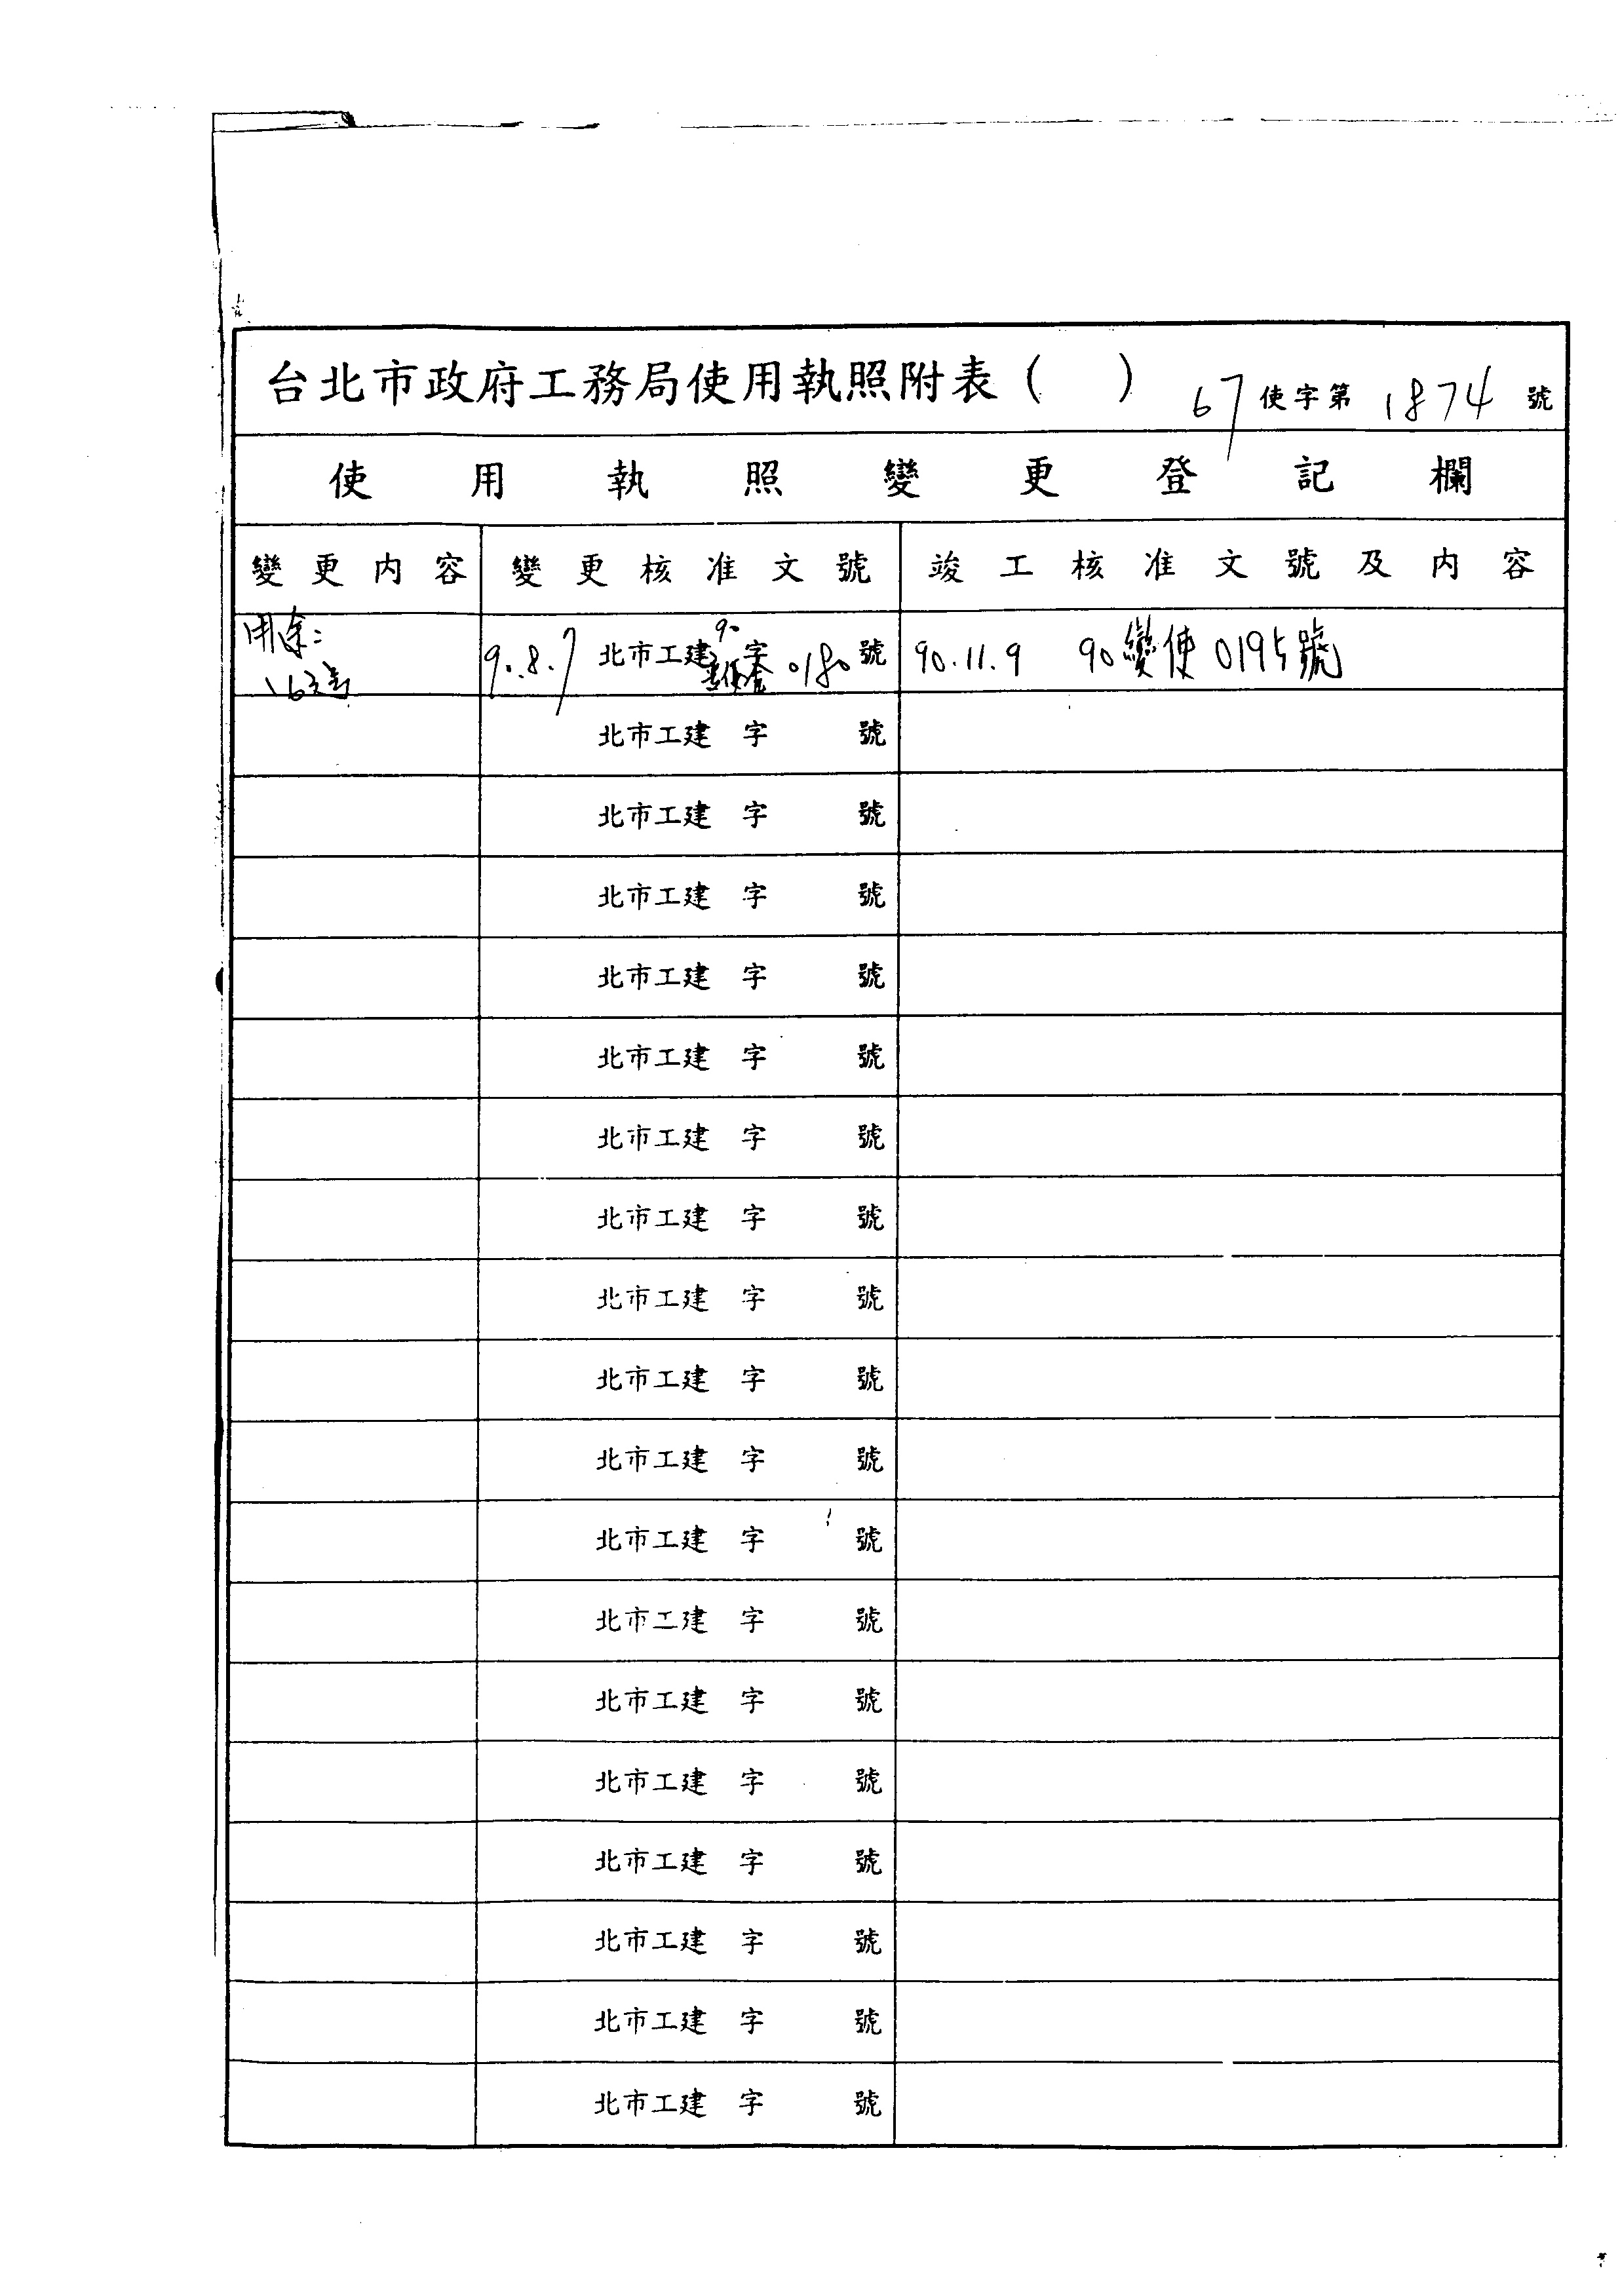 台北市政府工務局使用執照附表（　） 67使字第1874號
使用執照變更登記欄
變更內容 變更核准文號 竣工核准文號及內容
用途：
90
90.8.7 北市工建 字 0180 號 90.11.9 90變使0195號
北市工建 字 號
北市工建 字 號
北市工建 字 號
北市工建 字 號
北市工建 字 號
北市工建 字 號
北市工建 字 號
北市工建 字 號
北市工建 字 號
北市工建 字 號
北市工建 字 號
北市工建 字 號
北市工建 字 號
北市工建 字 號
北市工建 字 號
北市工建 字 號
北市工建 字 號
北市工建 字 號